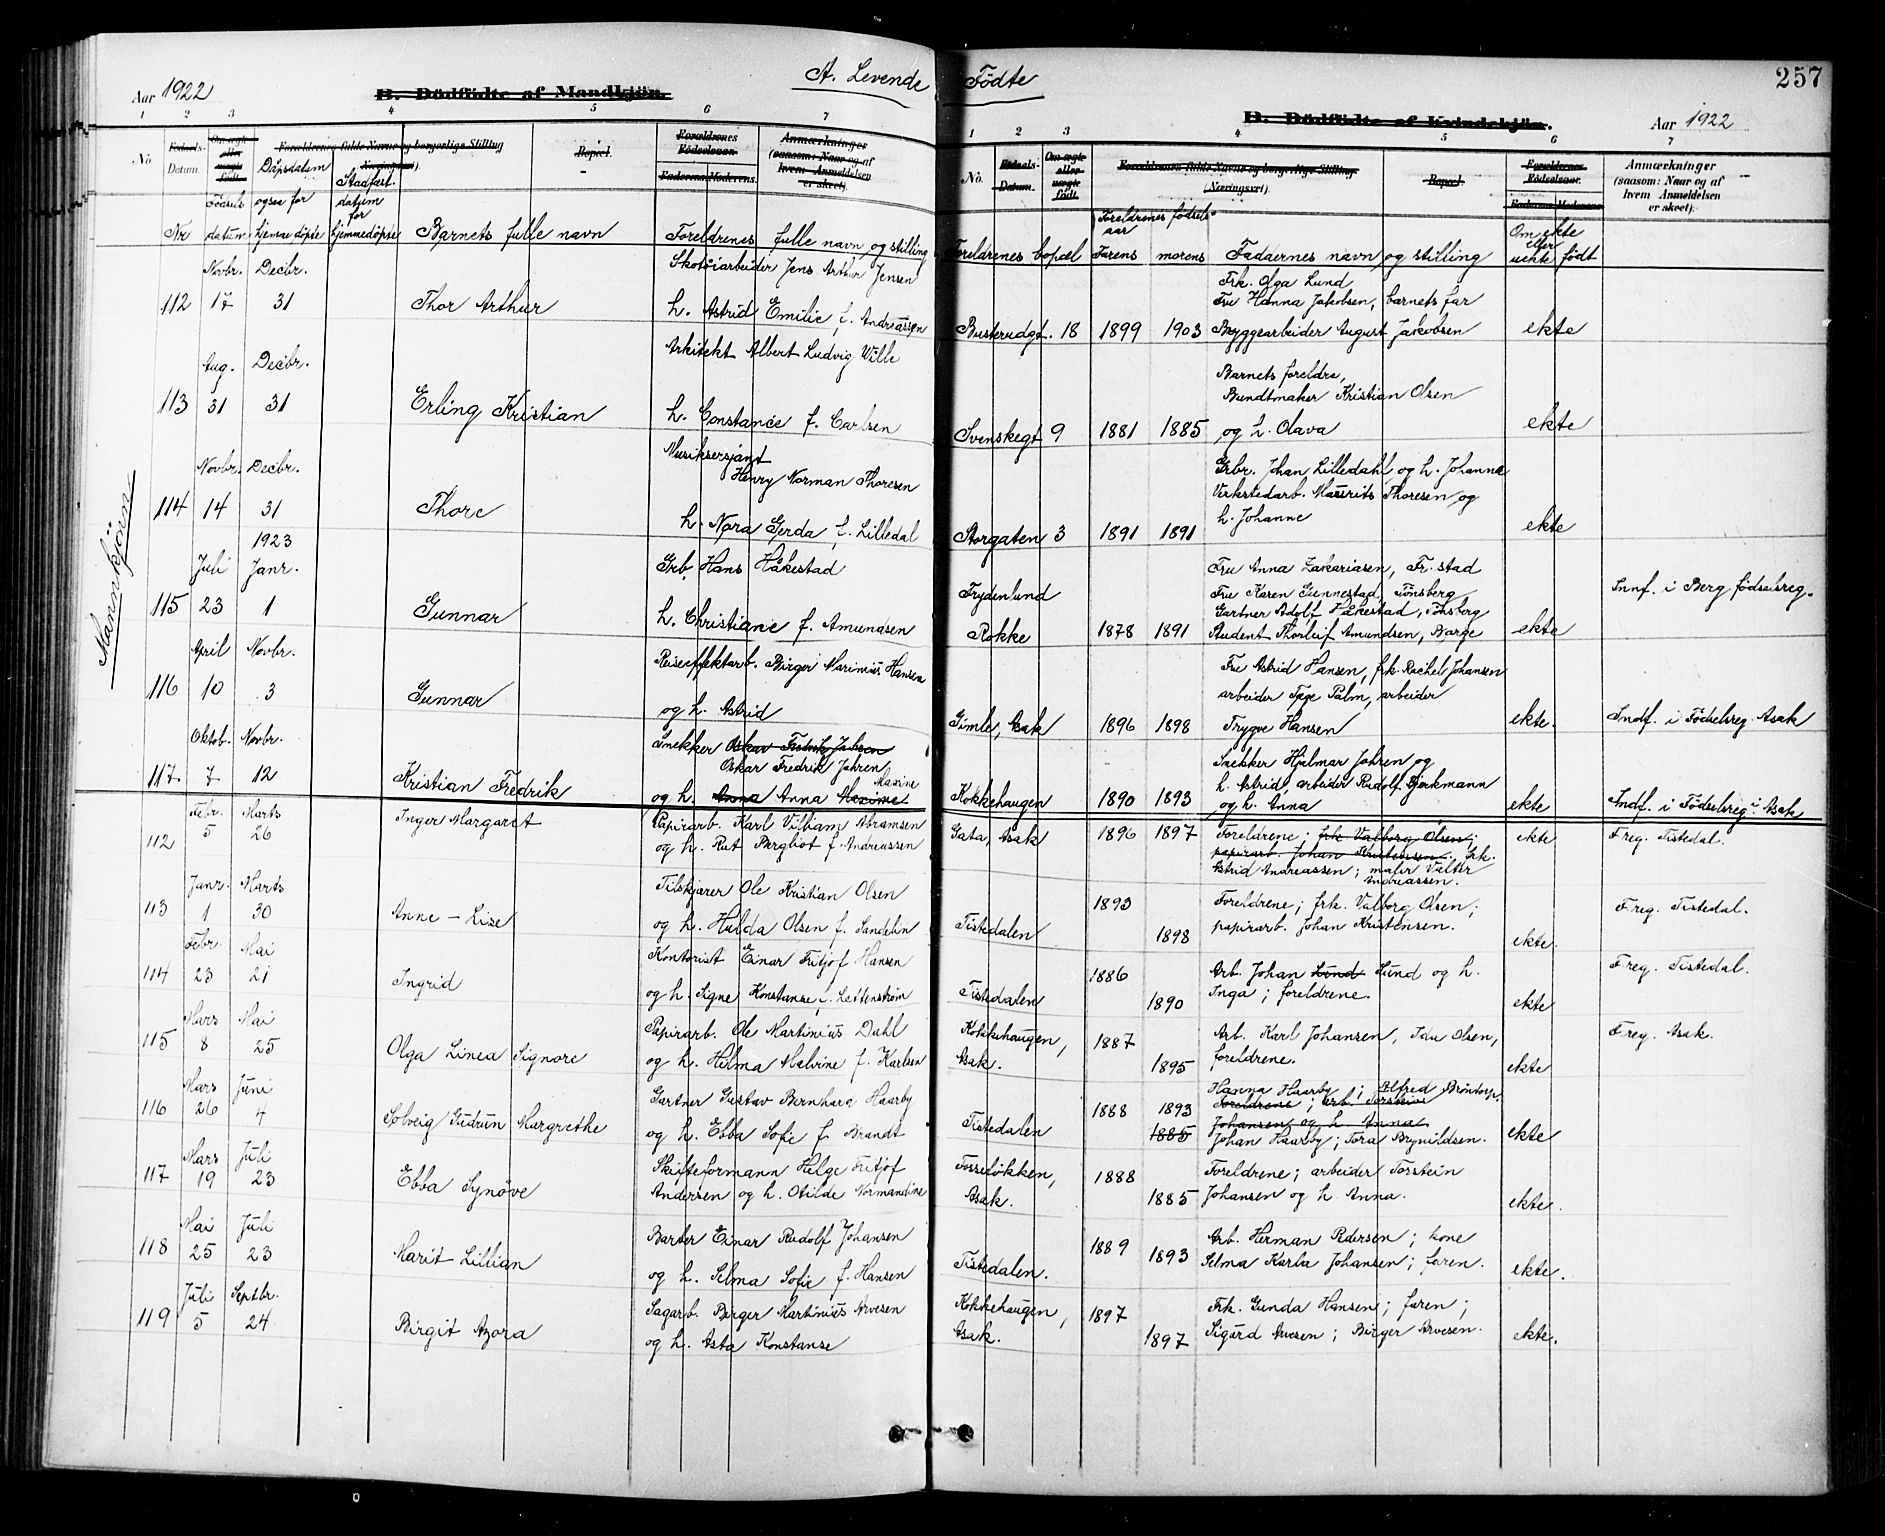 A. Levende Födte
257
Aar 1922
B. Dödfödte af Mandkjön.
B. Dödfödte af Kvindekjön.
Aar 1922
1 2 3 4 5 6 7
1 2 3 4 5 6 7
No. Datum. Forældrenes fulde Navne og borgerlige Stilling (Næringsvei). Bopæl. Forældrenes Fødselsaar. Faderens. Moderens. Anmærkninger (saasom: Naar og af hvem Anmeldelsen er skeet).
No. Fødsels-Datum. Om ægte eller uægte født. Forældrenes fulde Navne og borgerlige Stilling (Næringsvei). Bopæl. Forældrenes Fødselsaar. Faderens. Moderens. Anmærkninger (saasom: Naar og af hvem Anmeldelsen er skeet).
Nr Födsels datum Dåpsdatum ogsaa for hjemmedöpte Stadfæst. datum for hjemmedöpte Barnets fulle navn Foreldrenes fulle navn og stilling
Foreldrenes bopæl Foreldrenes födsels-aar Farens morens Faddernes navn og stilling Om ekte eller uekte født
Mannkjönn
Novbr. Decbr. Skotöiarbeider Jens Arthur Jensen Frk. Olga Lund
Fru Hanna Jakobsen, barnets far
112 17 31 Thor Arthur h. Astrid Emilie f. Andreassen Busterudgt. 18 1899 1903 Bryggearbeider August Jakobsen ekte
Aug. Decbr. Arkitekt Albert Ludvig Wille Barnets foreldre,
Bundtmaker Kristian Olsen
113 31 31 Erling Kristian h. Constance f. Carlsen Svenskegt 9 1881 1885 og h. Olava ekte
Novbr. Decbr. Musiksersjant Grbr. Johan Lilledahl og h. Johanna
Henry Norman Thoresen Verkstedarb. Mauritz Thoresen og
114 14 31 Thore h. Nora Gerda f. Lilledal Storgaten 3 1891 1891 h. Johanne ekte
1923
Juli Janr. Grb. Hans Håkestad Fru Anna Zakariasen, Fr.stad
Frydenlund Fru Karen Gunnestad, Tönsberg Innf. i Berg födselsreg.
Gartner Adolf Håkestad, Tönsberg
115 23 1 Gunnar h. Christiane f. Amundsen Rokke 1878 1891 Student Thorleif Amundsen, Borge ekte
April Novbr. Reiseeffektarb. Birger Marinius Hansen Fru Astrid Hansen, frk. Rachel Johansen
arbeider Tage Palm, arbeider
116 10 3 Gunnar og h. Astrid Gimle, Asak 1896 1898 Trygve Hansen ekte. Indf. i Fødselsreg. Asak
Oktob. Novbr. Snekker Oskar Fredrik Jahren
Oskar Fredrik Jahren Snekker Hjalmar Jahren og
Maxine h. Astrid, arbeider Rudolf Bjerkmann
117 7 12 Kristian Fredrik og h. Anna Anna Maxime Kokkehaugen 1890 1893 og h. Anna ekte Indf. i Fødselsreg. i Asak
Febr. Marts
112 5 26 Inger Margaret Papirarb. Karl Villiam Abramsen Gata, Asak 1896 1897 Foreldrene; frk. Valborg Olsen; ekte Freg. Tistedal.
og h. Rut Bergliot f. Andreassen papirarb. Johan Kristensen. frk.
Astrid Andreassen; maler Valter
Andreassen.
Janr. Marts Tilskjærer Ole Kristian Olsen
113 1 30 Anne-Lise og h. Hulda Olsen f. Sandelin Tistedalen 1893 1898 Foreldrene; frk. Valborg Olsen; Freg. Tistedal.
papirarb. Johan Kristensen. ekte.
Febr. Mai Kontorist Einar Fritjof Hansen
114 23 21 Ingrid og h. Signe Konstanse f. Lettenström Tistedalen 1886 1890 Arb. Johan Lund Lund og h. Freg. Tistedal.
Inga; foreldrene. ekte
Mars Mai Papirarb. Ole Martinius Dahl Kokkehaugen,
115 8 25 Olga Linea Signore og h. Hilma Malvine f. Karlsen Asak. 1887 1895 Arb. Karl Johansen, Ida Olsen, Freg. Asak.
foreldrene. ekte
Mars Juni Gartner Gustav Bernhard Haarby Hanna Haarby; Alfred Bröntorp,
116 26 4 Solveig Gudrun Margrethe og h. Ebba Sofie f. Brandt Tistedalen 1888 1893 Foreldrene; arb. Torstein
1885 Johansen og h. Anna
Johan Haarby; Tora Brynildsen. ekte
Mars Juli Skifteformann Helge Fritjof Fosseløkken,
117 19 23 Ebba Synöve Andersen og h. Otilde Normandine Asak. 1888 1885 Foreldrene; arbeider Torstein
Johansen og h. Anna. ekte.
Mai Juli Barber Einar Rudolf Johansen
118 25 23 Marit-Lillian og h. Selma Sofie f. Hansen Tistedalen. 1889 1893 Arb. Herman Pedersen; kone
Selma Karla Johansen; faren. ekte.
Juli Septbr. Sagarb. Birger Martinius Arvesen Kokkehaugen,
119 5 24 Birgit Azora og h. Asta Konstanse Asak. 1897 1897 Frk. Gunda Hansen; faren;
Sigurd Arvesen; Birger Arvesen. ekte.